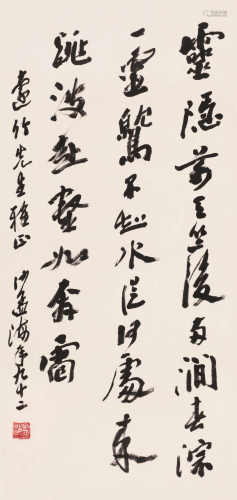 靈隱前天竺後兩澗春淙
一靈鷲不知水從何處來
跳波赴壑如奔雷
竹先生雅正 沙孟海年九十二